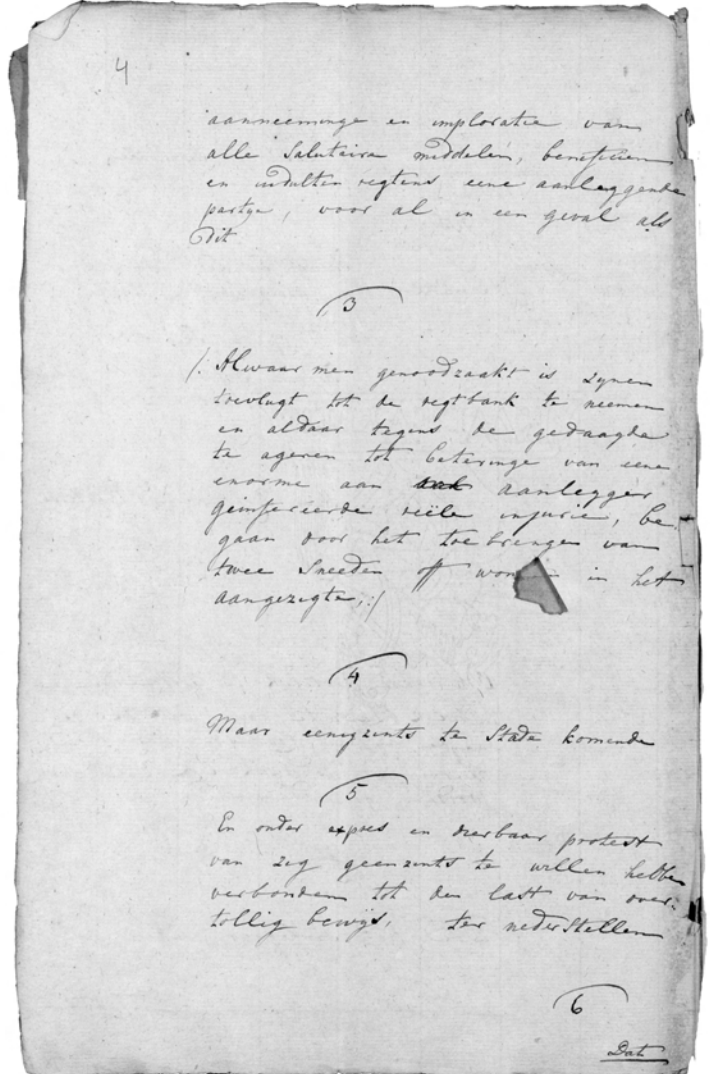 4
aanneeminge en imploratie van
alle Salutaire middelen, beneficien
en indulten regtens eene aanleggende
partye, voor al in een geval als
dit
3
/: Alwaar men genoodzaakt is zynen
toevlugt tot de regtbank te neemen
en aldaar tegens de gedaagde
te ageren tot beteringe van eene
enorme aan aanlegger
geinfereerde reële injurie, be,
gaan door het toebrengen van
twee Sneeden off in het
aangezigte,:/
4
Maar eenigzints te Stade komende
5
En onder expres en dierbaar protest
van zig geenzints te willen hebben
verbonden tot den last van over-
tollig bewijs, ter nederstellen
6
Dat